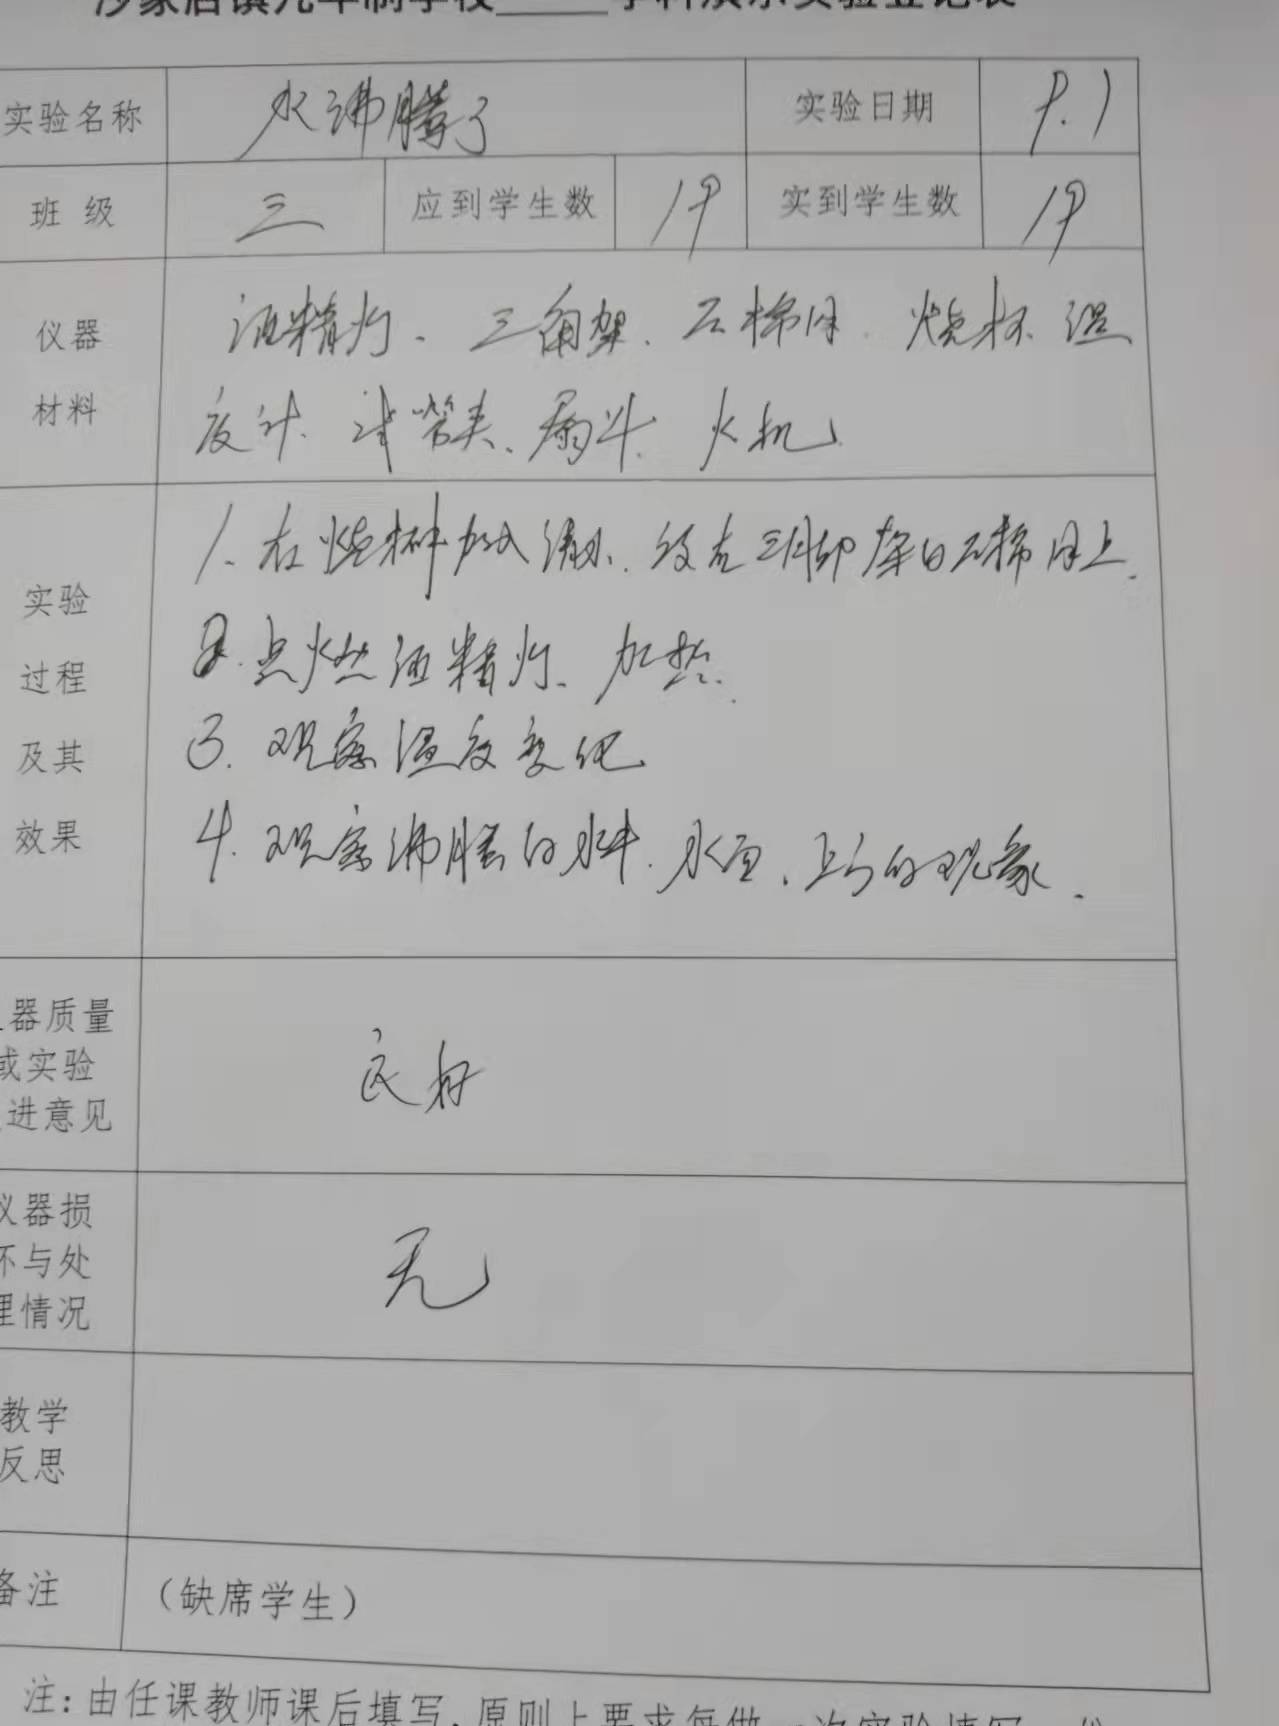 沙家店镇九年制学校____学科演示实验登记表
实验名称 水沸腾了 实验日期 9.1
班 级 三 应到学生数 19 实到学生数 19
仪器 酒精灯、三角架、石棉网、烧杯、温
材料 度计、试管夹、漏斗、火机
1. 在烧杯中加入清水、放在三角架的石棉网上.
实验
2. 点燃酒精灯、加热.
过程
3. 观察温度变化
及其
4. 观察沸腾的水中、水面、上方的现象.
效果
器质量
或实验 良好
进意见
仪器损
坏与处 无
理情况
教学
反思
备注 (缺席学生)
注:由任课教师课后填写,原则上要求每做一次实验填写一份